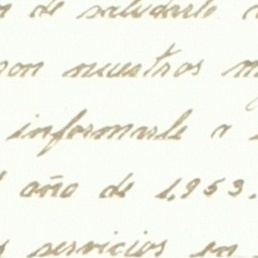 de saludarle
con nuestros
informarle a
año de 1.953.
servicios en